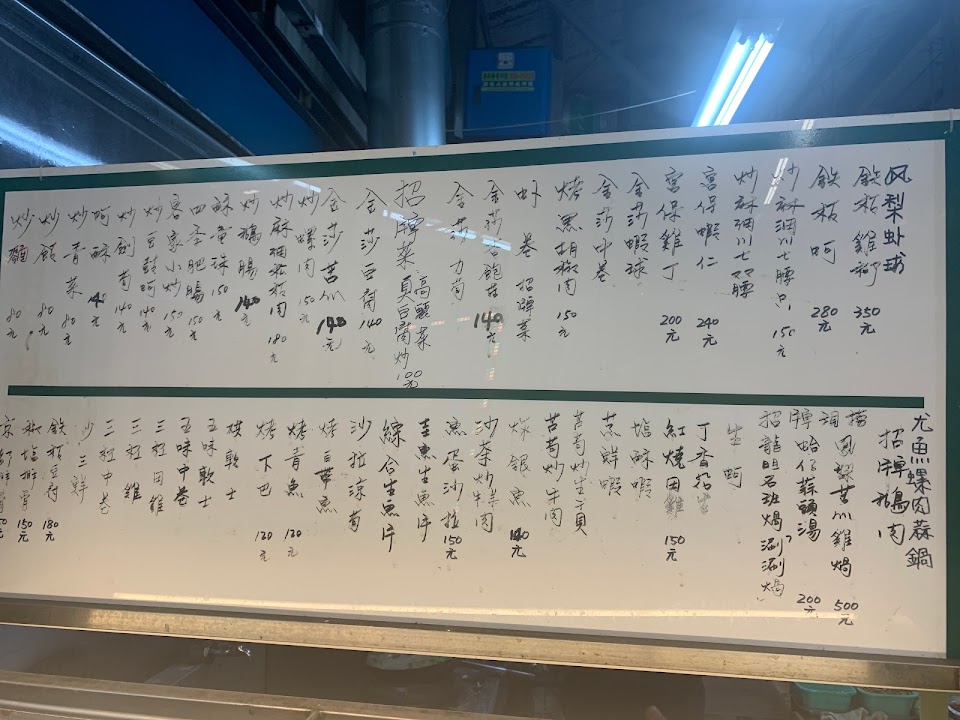 风梨虾球
鉄板雞柳 350元
鉄板蚵 280元
炒麻油川七腰只 150元
炒麻油川七双腰
宮保蝦仁 240元
宮保雞丁 200元
金莎蝦球
金莎中卷
烤黑胡椒肉 150元
虾卷 招牌菜
金莎杏鮑菇 140元
金莎力筍
招牌菜 高麗菜
臭豆腐炒 100元
金莎豆腐 140元
金莎苦瓜 140元
炒螺肉 150元
炒麻油松板肉 180元
炒鵝腸 140元
酥龍珠 150元
四季肥腸 150元
客家小炒 150元
炒豆豉蚵 140元
炒劍筍 140元
蚵酥
炒青菜 80元
炒飯 80元
炒麵 80元
尤魚螺肉蒜鍋
招牌鵝肉
鳳梨苦瓜雞鍋 500元
牌蛤仔蒜頭湯 200元
招龍胆石斑鍋涮涮鍋
生蚵
丁香招生
紅燒田雞 150元
塩酥蝦
蒸鮮蝦
芦荀炒牛肉
沙茶炒羊肉
炒銀魚 140元
魚蛋沙拉 150元
生魚片
綜合生魚片
沙拉涼荀
烤白帶魚
烤青魚 120元
烤下巴 120元
烘軟士
五味軟士
五味中卷
三杯田雞
三杯雞
三杯中卷
炒三鮮
鉄板豆腐 180元
椒塩排骨 150元
京都排骨